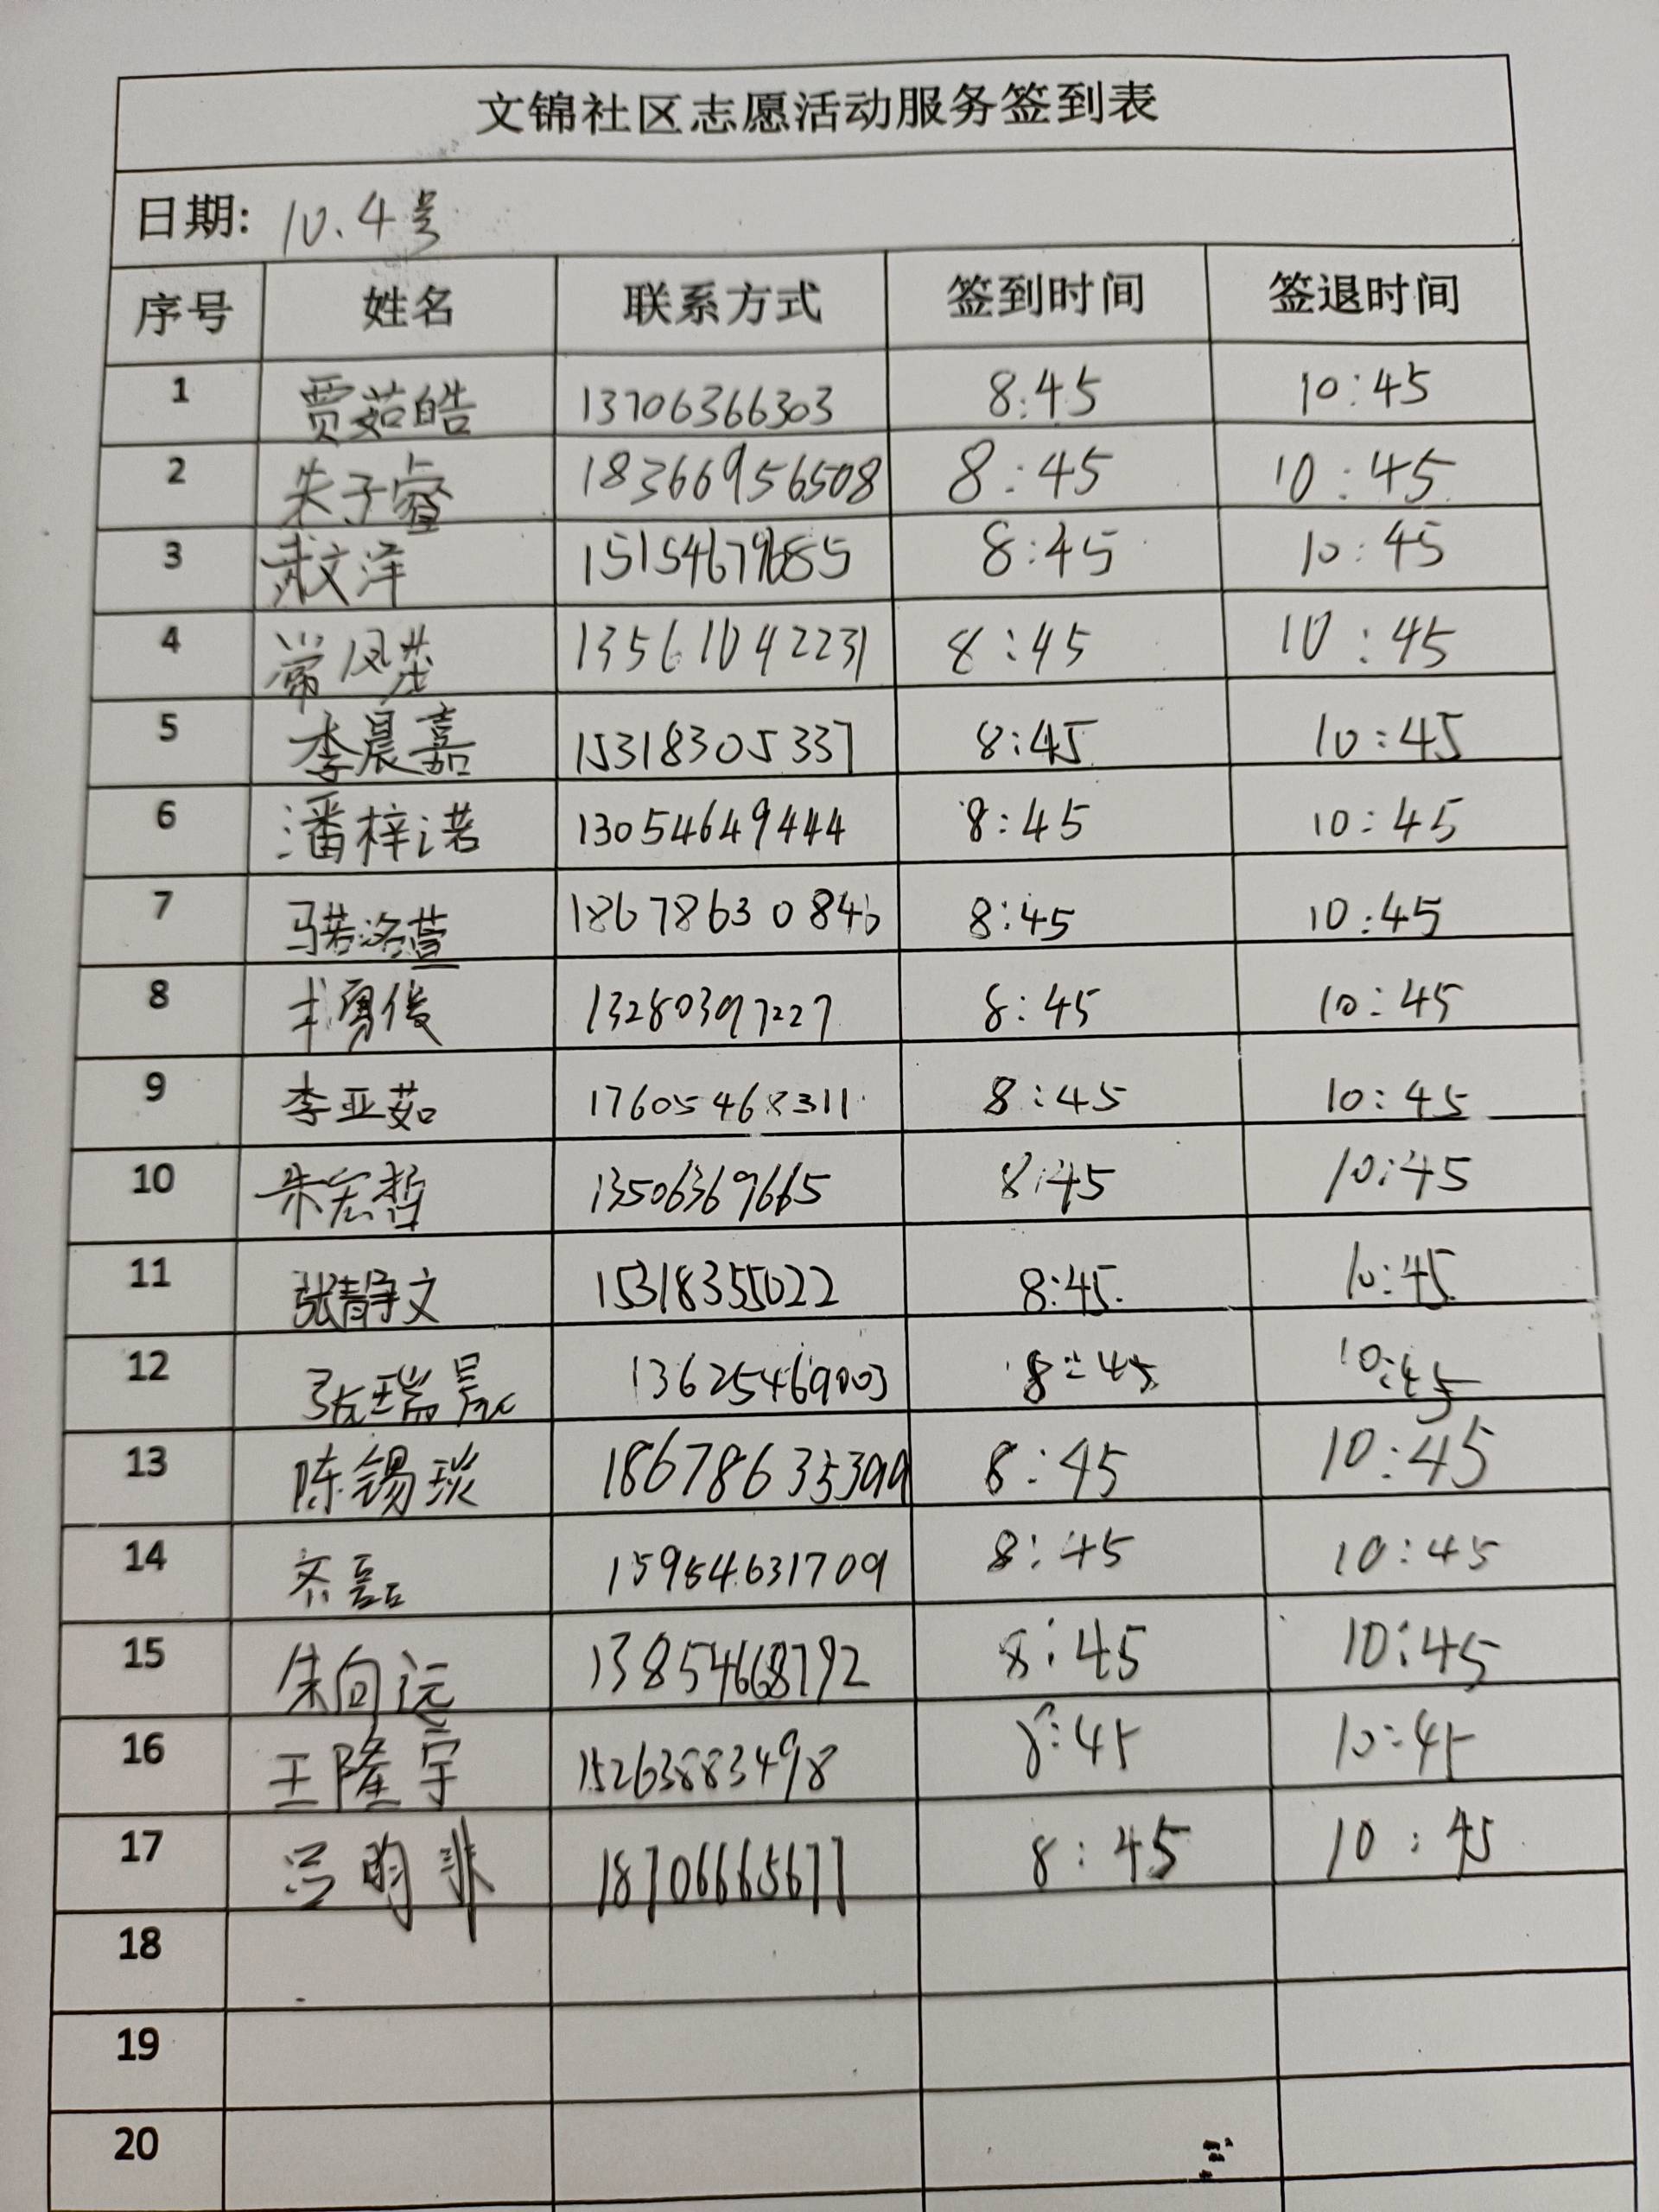 文锦社区志愿活动服务签到表
日期: 10.4号
序号 姓名 联系方式 签到时间 签退时间
1 贾茹皓 13706366303 8:45 10:45
2 朱子睿 18366956508 8:45 10:45
3 武文泽 15154679685 8:45 10:45
4 常风 13561042231 8:45 10:45
5 李晨嘉 15318305337 8:45 10:45
6 潘梓诺 13054649444 8:45 10:45
7 马若洛萱 18678630846 8:45 10:45
8 俊 13280397227 8:45 10:45
9 李亚茹 17605468311 8:45 10:45
10 朱宏哲 13506369665 8:45 10:45
11 张静文 15318355022 8:45 10:45
12 张瑞晟 13625469003 8:45 10:45
13 陈锡琰 18678635399 8:45 10:45
14 齐磊 15954631709 8:45 10:45
15 朱向远 13854668792 8:45 10:45
16 王隆宇 15263883498 8:45 10:45
17 吕昀非 18706665677 8:45 10:45
18
19
20